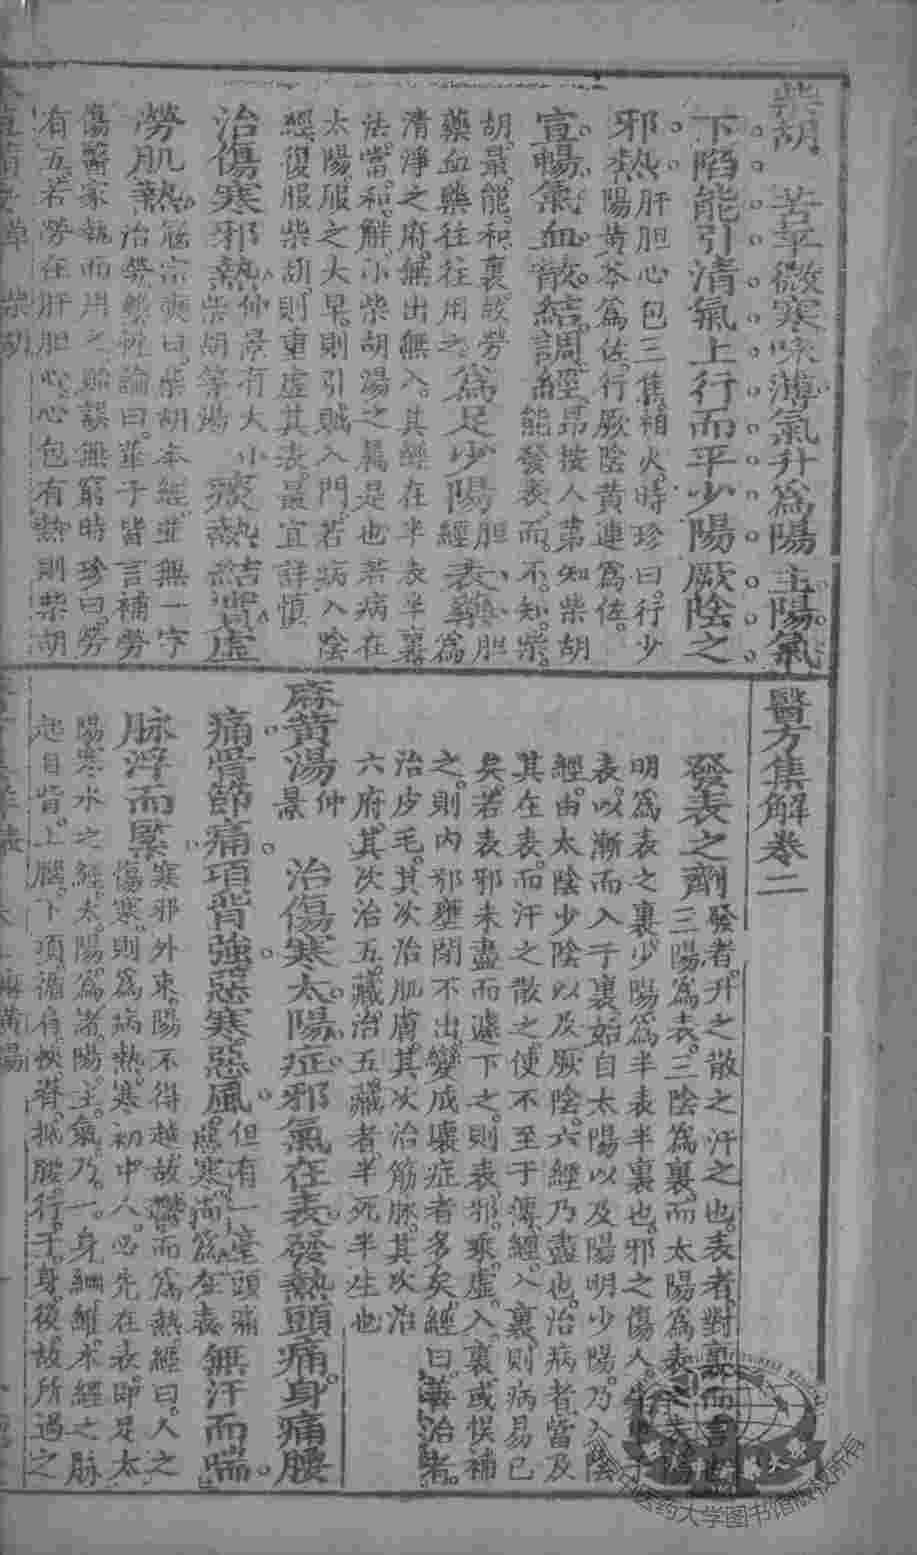 柴胡 苦平微寒味薄氣升為陽 主陽氣
下陷能引清氣上行而平少陽厥陰之
邪熱
肝胆心包三焦相火時珍曰行少
陽黄芩為佐行厥陰黄連為佐
宣暢氣血散結調經
昂按人第知柴胡
能發表而不知柴
胡最能和裏故勞
藥血藥往往用之
為足少陽
胆
經
表藥
胆
為
清淨之府無出無入其經在半表半裏
法當和解小柴胡湯之屬是也若病在
太陽服之太早則引賊入門若病入陰
經復服柴胡則重虛其表最宜詳慎
治傷寒邪熱
仲景有大小
柴胡等湯
痰熱結實虛
勞肌熱
寇宗奭曰柴胡本經並無一字
治勞藥性論曰 子皆言補勞
傷醫家執而用之貽誤無窮時珍曰勞
有五若勞在肝胆心心包有熱則柴胡
醫方集解卷二
發表之劑
發者升之散之汗之也表者對裏而言也
三陽為表三陰為裏而太陽為表之表陽
明為表之裏少陽為半表半裏也邪之傷人先
表以漸而入于裏始自太陽以及陽明少陽乃入陰
經由太陰少陰以及厥陰六經乃盡也治病者當及
其在表而汗之散之使不至于傳經入裏則病易已
矣若表邪未盡而遽下之則表邪乘虛入裏或悞補
之則内邪壅閉不出變成壞症者多矣經曰善治者
治皮毛其次治肌膚其次治筋脉其次治
六府其次治五藏治五藏者半死半生也
麻黄湯
仲
景
治傷寒太陽症邪氣在表發熱頭痛身痛腰
痛骨節痛項背強惡寒惡風
但有一毫頭痛
惡寒尚為在表
無汗而喘
脉浮而緊
寒邪外束陽不得越故鬱而為熱經曰人之
傷寒則為病熱寒初中人必先在表即足太
陽寒水之經太陽為諸陽主氣乃一身綱維本經之脉
起目眥上腦下項循肩挾脊抵腰行于身後故所過之
中医药大学图书馆版权所有